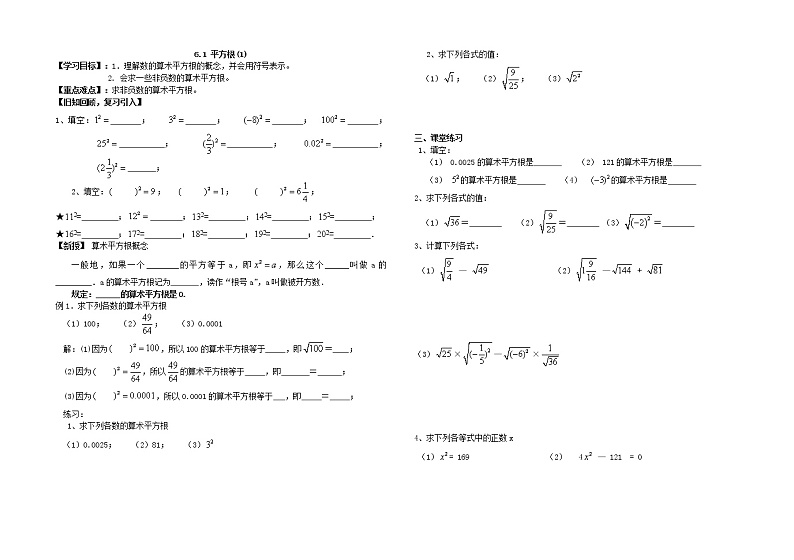 6.1 平方根(1)
【学习目标】:1、理解数的算术平方根的概念,并会用符号表示。
2. 会求一些非负数的算术平方根。
【重点难点】:求非负数的算术平方根。
【旧知回顾,复习引入】
1、填空:1²=______; 3²=______; (−8)²=______; 100²=______;
25²=_________; (2/3)²=_________; 0.02²=_________;
(2 1/3)²=______;
2、填空:( )²=9; ( )²=1; ( )²=6 1/4;
★11²=________;12²=_______;13²=________;14²=________;15²=________;
★16²=________;17²=________;18²=________;19²=________;20²=________.
【新授】 算术平方根概念
一般地,如果一个_______的平方等于a,即x²=a,那么这个_____叫做a的
________.a的算术平方根记为______,读作“根号a”,a叫做被开方数.
规定:_____的算术平方根是0.
例1、求下列各数的算术平方根
(1)100; (2)49/64; (3)0.0001
解:(1)因为( )²=100,所以100的算术平方根等于_____,即√100=____;
(2)因为( )²=49/64,所以49/64的算术平方根等于_____,即______=_____;
(3)因为( )²=0.0001,所以0.0001的算术平方根等于___,即_____=_____;
练习:
1、求下列各数的算术平方根
(1)0.0025; (2)81; (3)3²
2、求下列各式的值:
(1)√1; (2)√(9/25); (3)√2²
三、课堂练习
1、填空:
(1) 0.0025的算术平方根是______ (2) 121的算术平方根是______
(3) 5²的算术平方根是______ (4) (−3)²的算术平方根是______
2、求下列各式的值:
(1)√36=_______ (2)√(9/25)=_______ (3)√(−2)²=_______
3、计算下列各式:
(1)√(9/4) — √49 (2)√(1 9/16) —√144 + √81
(3)√25×√(−1/5)²—√(−6)²×1/√36
4、求下列各等式中的正数x
(1)x²= 169 (2) 4x² — 121 = 0